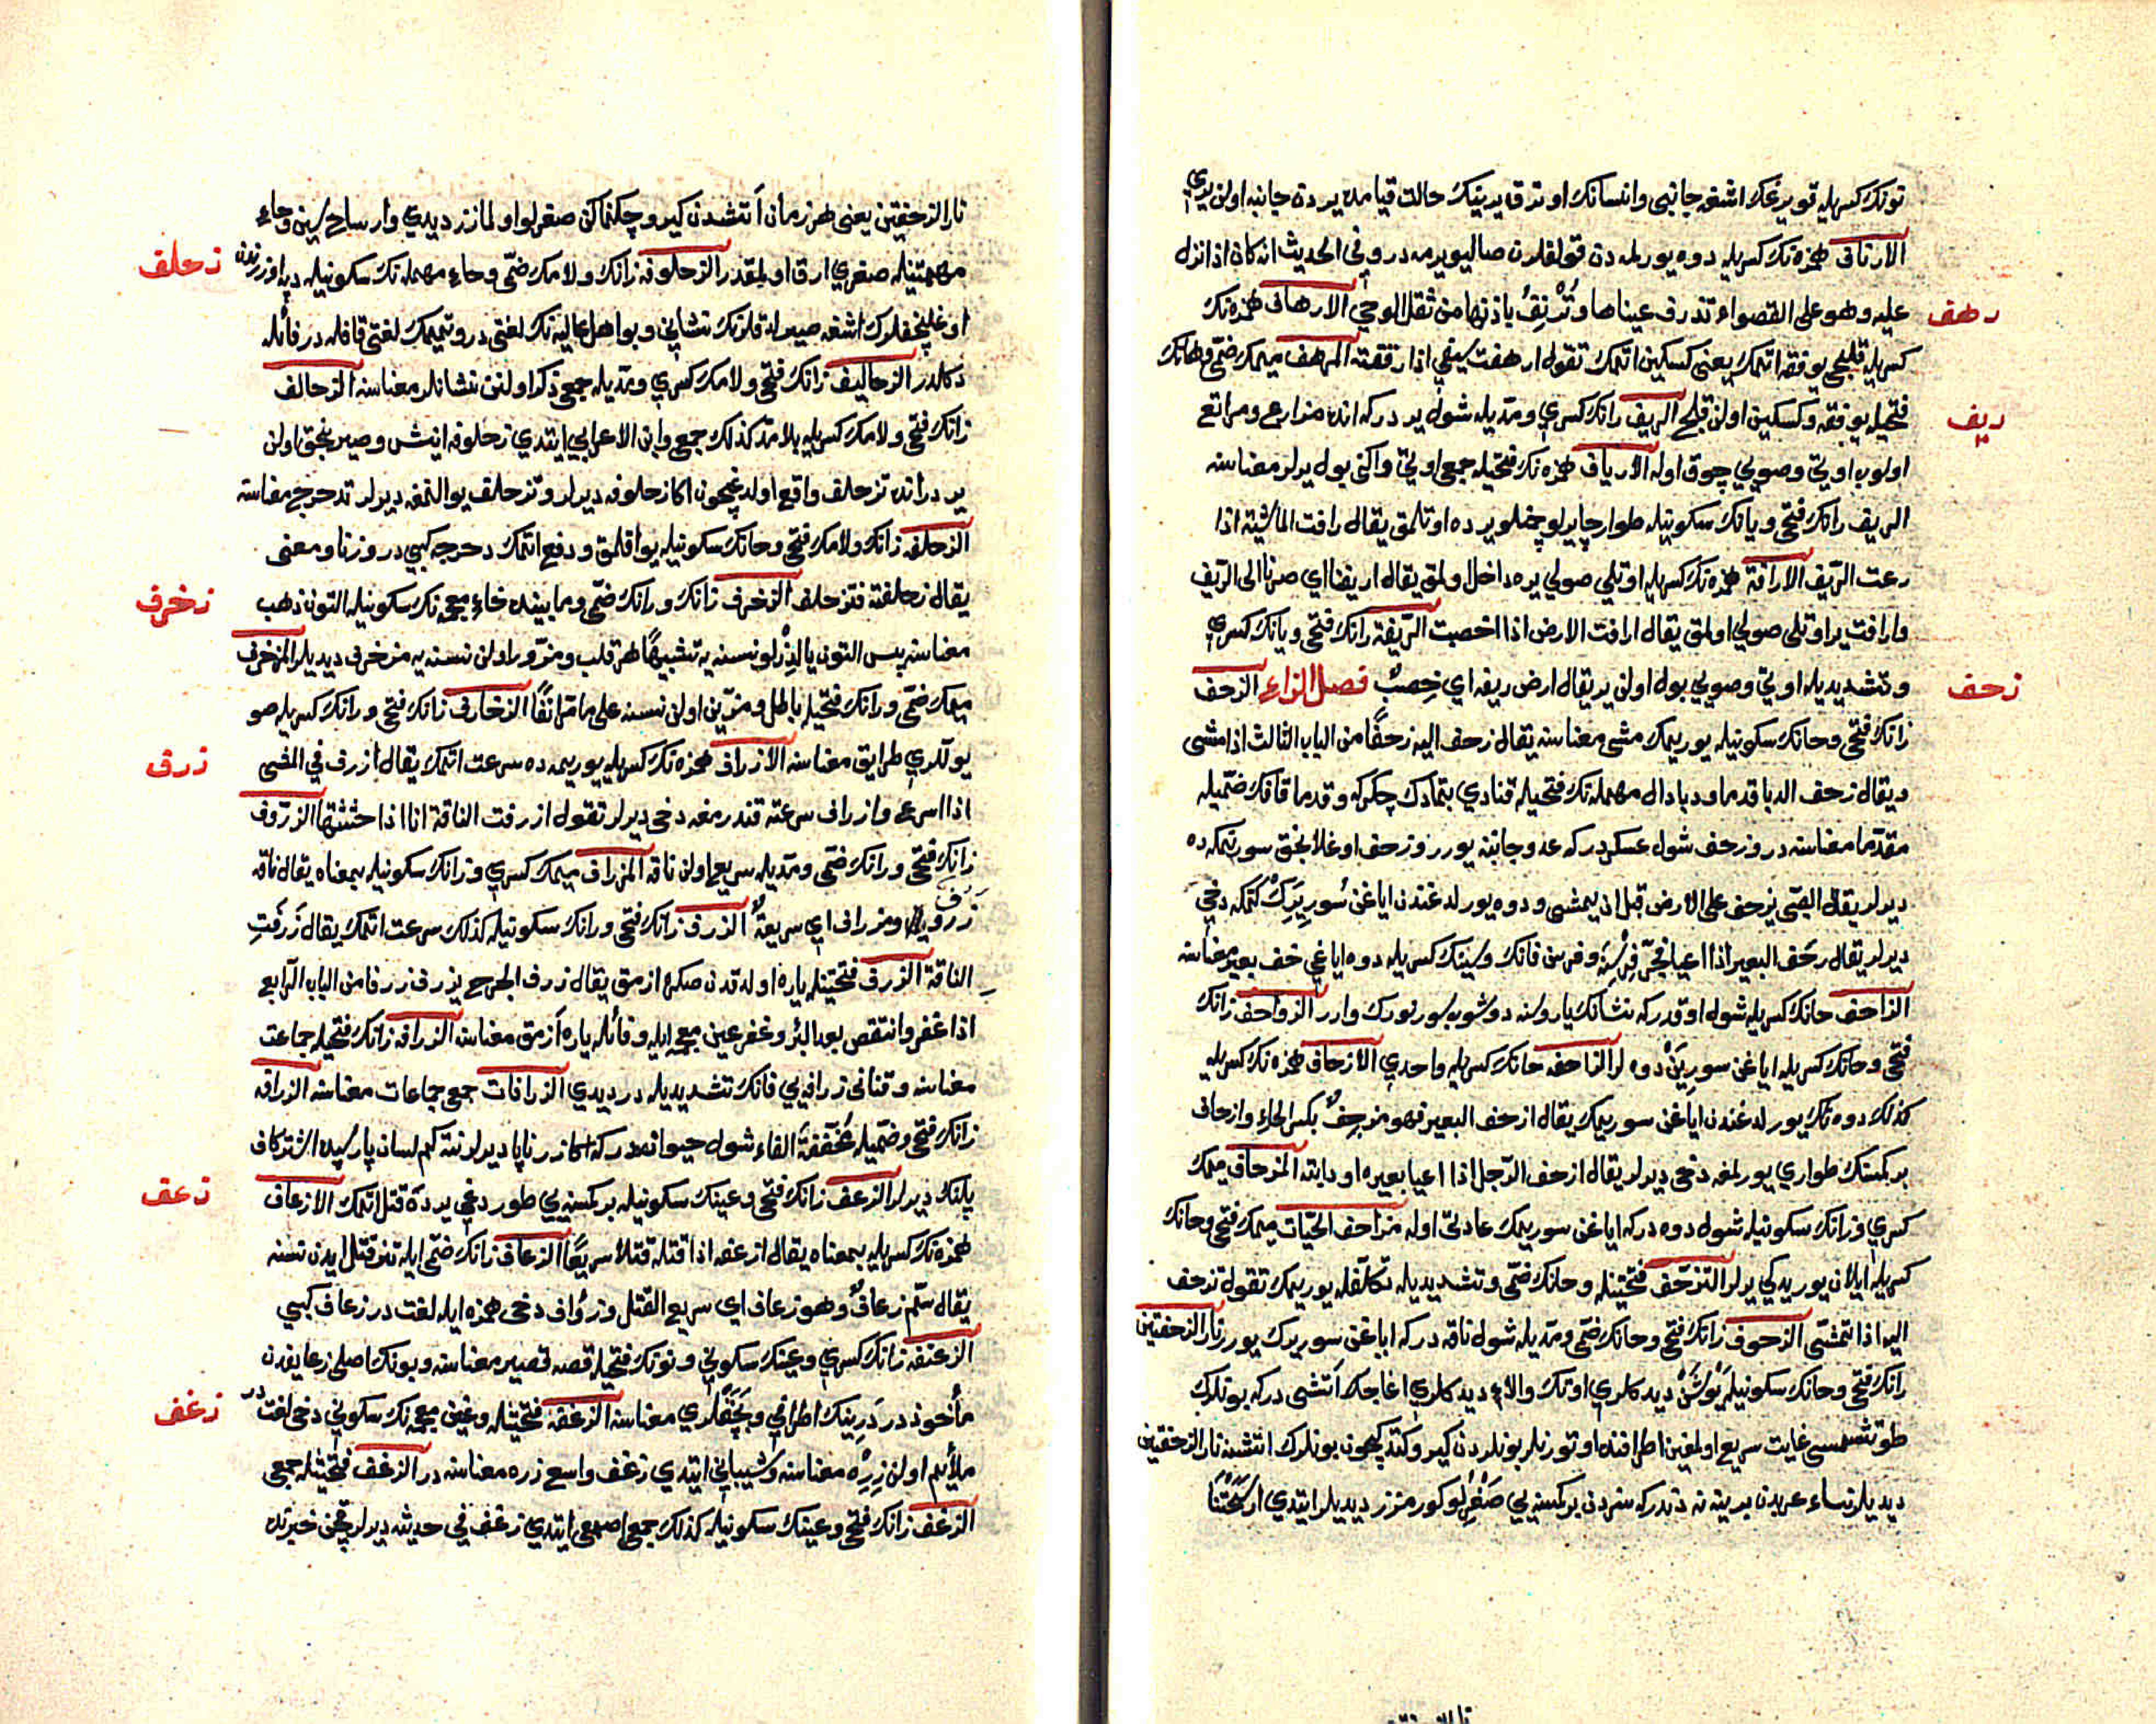 تونك كسريله قويرغك اشغه جانبی وانسانك اوترق يرينك حالت قيامده يردن جانبه اولن يری
الارناف همزه نك كسريله دوه يورلمه دن قولقلرن صاليويرمه در وفی الحديث انه كان اذا انزل
رهف
عليه وهو علی القصواء تذرف عيناها وتُرْنِفُ باذنيها من ثقل الوحی الارهاف همزه نك
كسريله قليجی يوفقه اتمك يعنی كسكين اتمك تقول ارهفت سيفی اذا رققته المرهف ميمك ضمّی وهانك
ريف
فتحيله يوفقه وكسكين اولن قلج الريف رانك كسری ومدّيله شول يردركه انده مزارع ومراتع
اولوب اوتی وصويی چوق اوله الارياف همزه نك فتحيله جمعی اوتی واكنی بول يرلر معناسنه
الريف رانك فتحی ويانك سكونيله طوار چايرلو چمنلو يرده اوتلمق يقال رافت الماشية اذا
رعت الرّيف الارافة همزه نك كسريله اوتلی صولی يره داخل اولمق يقال اريفنا ای صرنا الی الرّيف
وارافت ير اوتلی صولی اولمق يقال ارافت الارض اذا اخصبت الرّيفة رانك فتحی ويانك كسری
زحف
وتشديديله اوتی وصويی بول اولن ير يقال ارض ريفة ای خِصبٌ فصل الزاء الزحف
زانك فتحی وحانك سكونيله يوريمك مشی معناسنه يقال زحف اليه زحفًا من الباب الثالث اذا مشی
ويقال زحف الدبا قدما ودبا دال مهمله نك فتحيله قنادی بتمادك چكركه وقدما قافك ضمّيله
مقدّما معناسنه در وزحف شول عسكردركه عدو جانبنه يورر وزحف اوغلانجق سورنمكه ده
ديرلر يقال الصّبی يزحف علی الارض قبل ان يمشی ودوه يورلدغندن اياغن سُورِيَرِكْ كتمكه دخی
ديرلر يقال زحف البعير اذا اعيا فجرّ فِرْسِنَه وفرسن فانك وسينك كسريله دوه اياغی خف بعير معناسنه
الزاحف حانك كسريله شول اوقدركه نشانك ياروسنه دوشوب سورنورك وارر الزواحف زانك
فتحی وحانك كسريله اياغن سورين دوه لر الزاحفه حانك كسريله واحدی الازحاف همزه نك كسريله
كذلك دوه نك يورلدغندن اياغن سوريمك يقال ازحف البعير فهو مزحِفٌ بكسر الحاء وازحاف
بر كمسنك طواری يورلمغه دخی ديرلر يقال ازحف الرّجل اذا اعيا بعيره او دابته المزحاف ميمك
كسری وزانك سكونيله شول دوه دركه اياغن سوريمك عادتی اوله مزاحف الحيّات ميمك فتحی وحانك
كسريله ايلان يوريدكی يرلر التزحّف فتحتينله وحانك ضمّی وتشديديله تكلّفله يوريمك تقول تزحف
اليه اذا تمشّی الزحوف زانك فتحی وحانك ضمّی ومدّيله شول ناقه دركه اياغن سوريرك يورر نار الزحفتين
زانك فتحی وحانك سكونيله يَوْشَنْ ديدكلری اوتك والاء ديدكلری اغاجك آتشی دركه بونلرك
طوتشمسی غايت سريع اولمغين اطرافنده اوتورنلر بونلردن كيرو كتدكيچون بونلرك اتشنه نار الزحفتين
ديديلر نساء عربدن برينه نه دندركه سزدن بر كمسنه يی صَغْرِلُو كورمزز ديديلر ايتدی ارسَحَتْنَا
نار الزحفتين يعنی هر زمان آتشدن كيرو چكنماكن صغرلو اولمازز ديدی وارساح سين وحاء
زحلف
مهملتينله صغری ارق اولمقدر الزحلوفه زانك ولامك ضمّی وحاء مهمله نك سكونيله دپه اوزرندن
اوغلنجقلرك اشغه صيرلدقلرنك نشانی وبو اهل عاليه نك لغتی در وتميمك لغتی قافله در فائله
دكلدر الزحاليف زانك فتحی ولامك كسری ومدّيله جمعی ذكر اولنن نشانلر معناسنه الزحالف
زانك فتحی ولامك كسريله بلا مدّ كذلك جمعی وابن الاعرابی ايتدی زحلوفه اينش وصيرنجق اولن
يردر انده تزحلف واقع اولدغيچون اكا زحلوفه ديرلر وتزحلف يوالنمغه ديرلر تدحرج معناسنه
الزحلفه زانك ولامك فتحی وحانك سكونيله يواقلمق ودفع اتمك دحرجه كبی در وزنا ومعنی
زخرف
يقال زحلفته فتزحلف الزخرف زانك ورانك ضمّی ومابينده خاء معجمه نك سكونيله التون ذهب
معناسنه پس التون يالدزلو نسنه يه تشبيهًا هر قلب ومزوّر اولن نسنه يه مزخرف ديديلر المزخرف
ميمك ضمّی ورانك فتحيله باطل ومزيّن اولن نسنه علی ما مرّ آنفًا الزخارف زانك فتحی ورانك كسريله صو
زرف
يوللری طرايق معناسنه الازراف همزه نك كسريله يوريمه ده سرعت اتمك يقال ازرف فی المشی
اذا اسرع وازراف سرعته قندرمغه دخی ديرلر تقول ازرفت الناقة انا اذا حثثتها الزرّوف
زانك فتحی ورانك ضمّی ومدّيله سريع اولن ناقه المزراف ميمك كسری وزانك سكونيله بمعناه يقال ناقة
زروف ومزراف ای سريعةٌ الزرف زانك فتحی ورانك سكونيله كذلك سرعت اتمك يقال زَرَفَتِ
الناقة الزرف فتحتينله ياره اولدقدن صكره ازمق يقال زرف الجرح يزرف زرفا من الباب الرّابع
اذا غفر وانتقص بعد البرء وغفر عين معجمه ايله وفائله ياره آزمق معناسنه الزرافه زانك فتحيله جماعت
معناسنه وقنانی زرافه يی فانك تشديديله در ديدی الزرافات جمعی جماعات معناسنه الزرافه
زانك فتحی وضمّيله مُخَفَّفَةَ الفاء شول حيواندركه اكا زرناپا ديرلر نته كم لسان پارسيده اشتركاف
زعف
پلنك ديرلر الزعف زانك فتحی وعينك سكونيله بر كمسنه يی طوردغی يرده قتل اتمك الازعاف
همزه نك كسريله بمعناه يقال ازعفه اذا قتله قتلا سريعًا الزعاف زانك ضمّی ايله تيز قتل ايدن نسنه
يقال سمّ زعافٌ وهو زعاف ای سريع القتل وزؤاف دخی همزه ايله لغت در زعاف كبی
الزعنفه زانك كسری وعينك سكونی ونونك فتحيله قصه قصير معناسنه وبونك اصلی زعانفدن
زغف
مأخوذدر دَرِينك اطرافی وبَچَقْلَری معناسنه الزغفه فتحتينله وغين معجمه نك سكونی دخی لغت در
ملأيم اولن زِرِهْ معناسنه وشيبانی ايتدی زغف واسع زره معناسنه در الزغف فتحتينله جمعی
الزغف زانك فتحی وعينك سكونيله كذلك جمعی اصمعی ايتدی زغف فی حديثه ديرلر قچن خبرنده